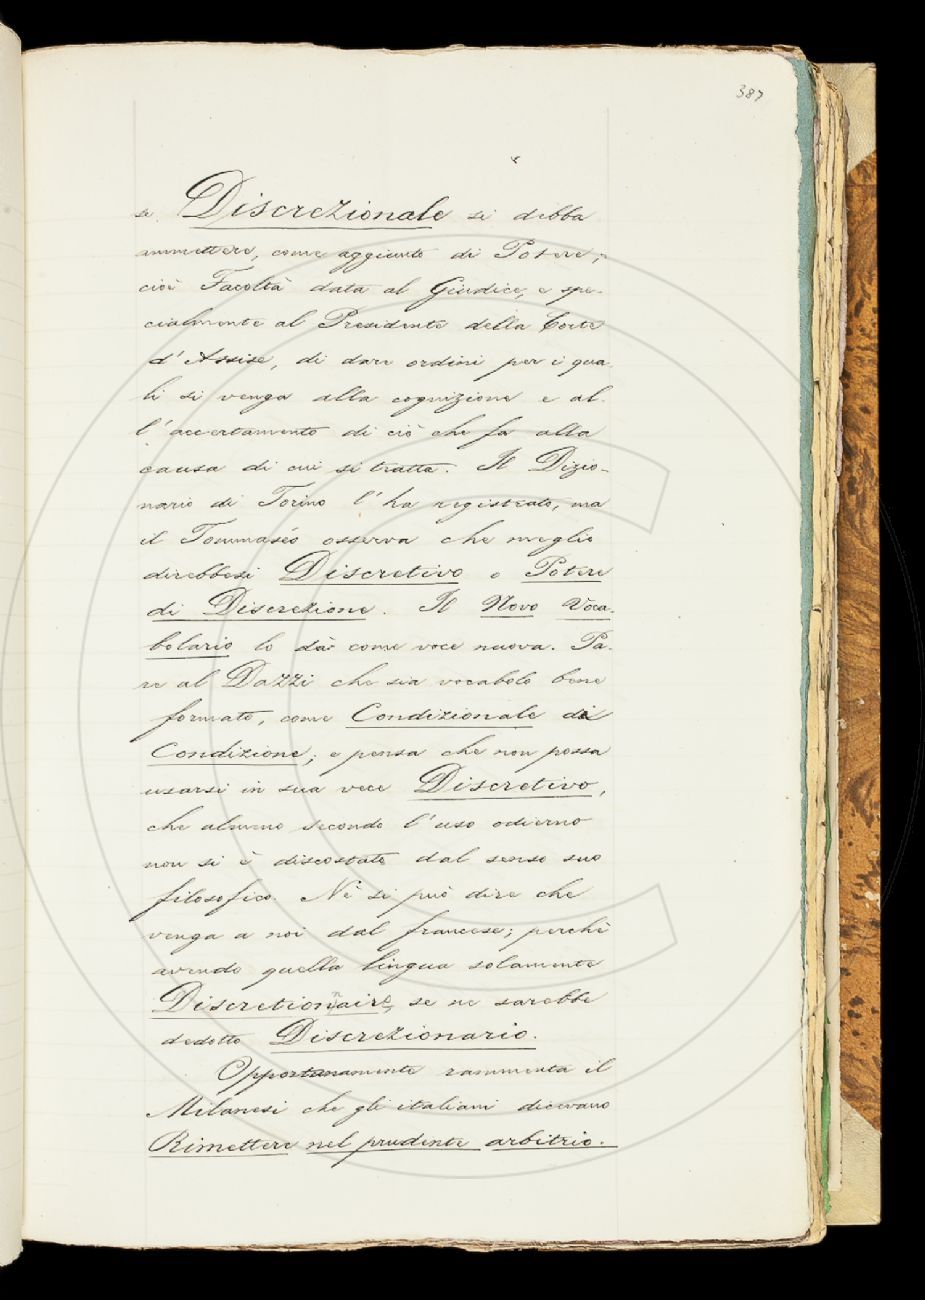 387
se Discrezionale si debba
ammettere, come aggiunto di Potere;
cioè Facoltà data al Giudice, e spe-
cialmente al Presidente della Corte
d'Assise, di dare ordini per i qua-
li si venga alla cognizione e al-
l'accertamento di ciò che fa alla
causa di cui si tratta. Il Dizio-
nario di Torino l'ha registrato, ma
il Tommaséo osserva che meglio
direbbesi Discretivo o Potere
di Discrezione. Il Novo Voca-
bolario lo dà come voce nuova. Pa-
re al Dazzi che sia vocabolo bene
formato, come Condizionale di
Condizione, e pensa che non possa
usarsi in sua vece Discretivo,
che almeno secondo l'uso odierno
non si è discostato dal senso suo
filosofico. Nè si può dire che
venga a noi dal francese; perchè
avendo quella lingua solamente
Discretionnaire, se ne sarebbe
dedotto Discrezionario.
Opportunamente rammenta il
Milanesi che gli italiani dicevano
Rimettere nel prudente arbitrio.